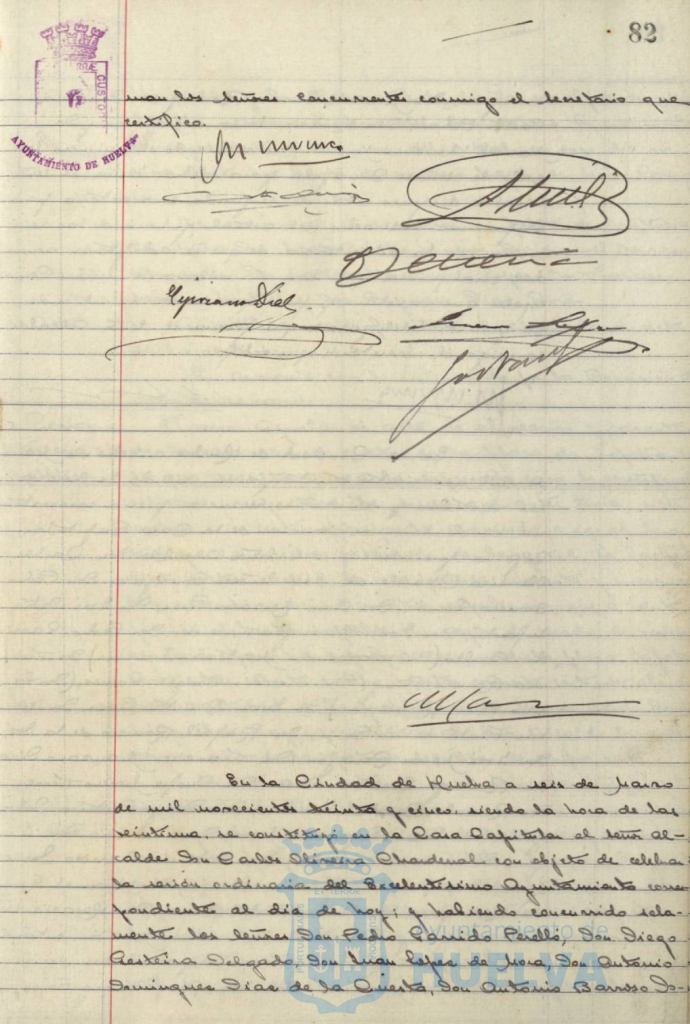 82
CUSTO
AYUNTAMIENTO DE HUELVA
man los señores concurrentes conmigo el Secretario que
certifico.
Cipriano Diaz
En la Ciudad de Huelva a seis de Marzo
de mil novecientos treinta y cinco, siendo la hora de las
veintiuna, se constituyó en la Casa Capitular el señor Al-
calde Don Carlos Oliveira Chardenal con objeto de celebrar
la sesión ordinaria del Excelentísimo Ayuntamiento corres-
pondiente al día de hoy; y habiendo concurrido sola-
mente los señores Don Pedro Garrido Perelló, Don Diego
Delgado, Don Juan López de Mora, Don Antonio
Dominguez Diaz de la Cuesta, Don Antonio Barroso
Ayuntamiento de
HUELVA